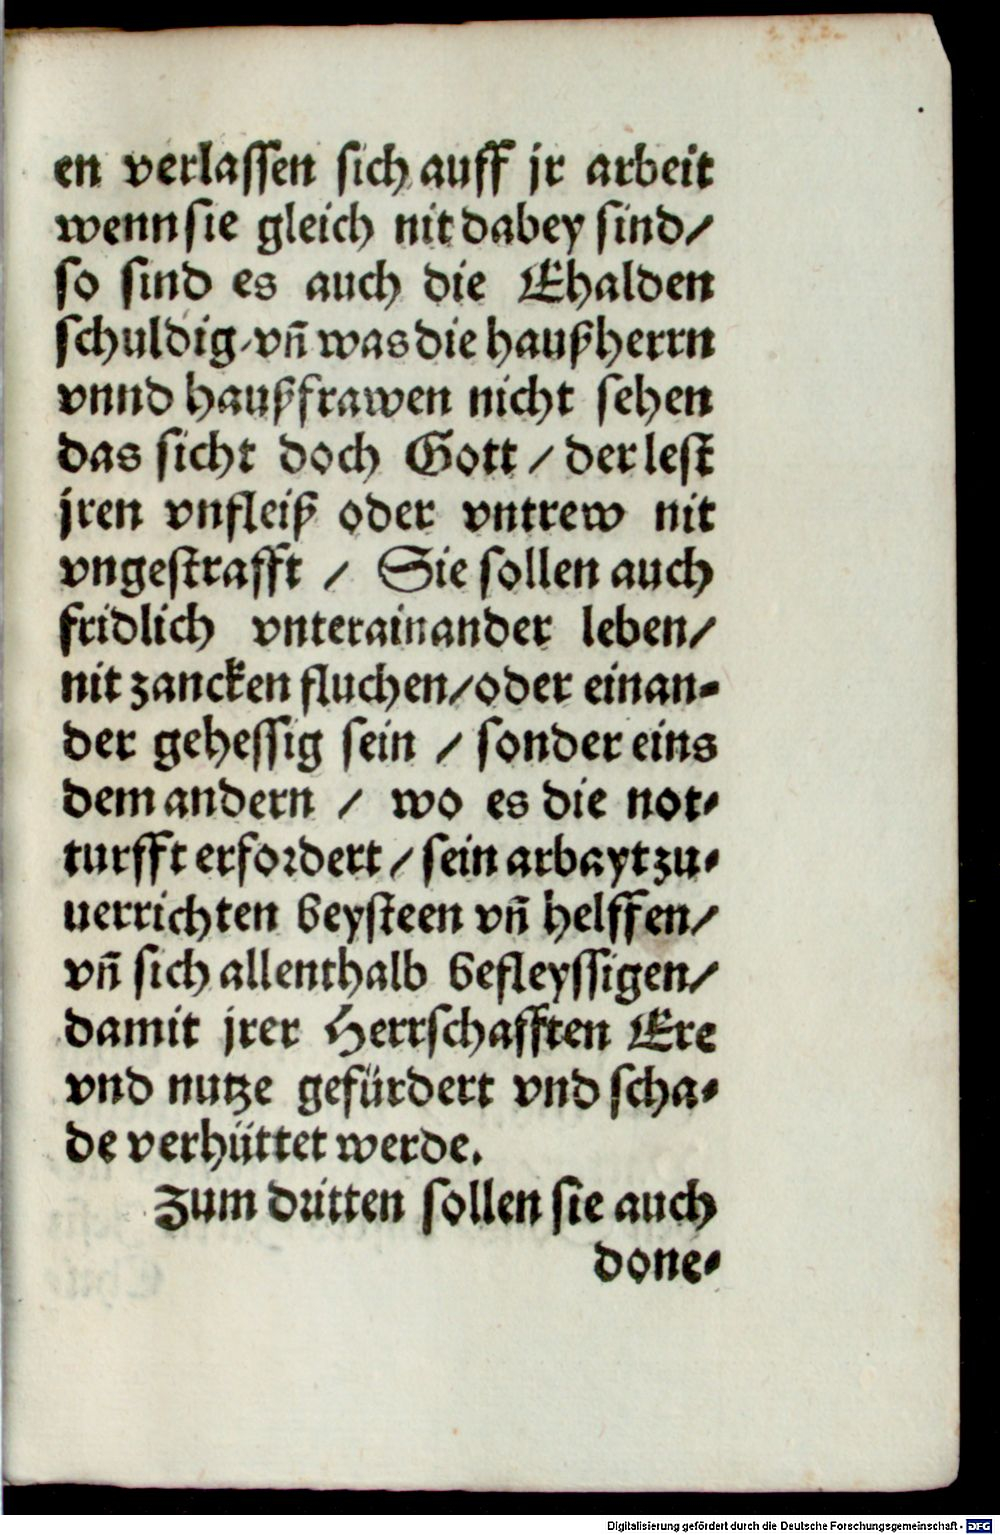 en verlaſſen ſich auff jr arbeit
wenn ſie gleich nit dabey ſind/
ſo ſind es auch die Ehalden
ſchuldig/vñ was die haußherrn
vnnd haußfrawen nicht ſehen
das ſicht doch Gott / der leſt
jren vnfleiß oder vntrew nit
vngeſtrafft / Sie ſollen auch
fridlich vnterainander leben/
nit zancken fluchen/oder einan-
der geheſſig ſein / ſonder eins
dem andern / wo es die not-
turfft erfordert / ſein arbayt zu-
uerrichten beyſteen vñ helffen/
vñ ſich allenthalb befleyſſigen/
damit jrer Herrſchafften Ere
vnd nutze gefürdert vnd ſcha-
de verhüttet werde.
Zum dritten ſollen ſie auch
done-
Digitalisierung gefördert durch die Deutsche Forschungsgemeinschaft - DFG